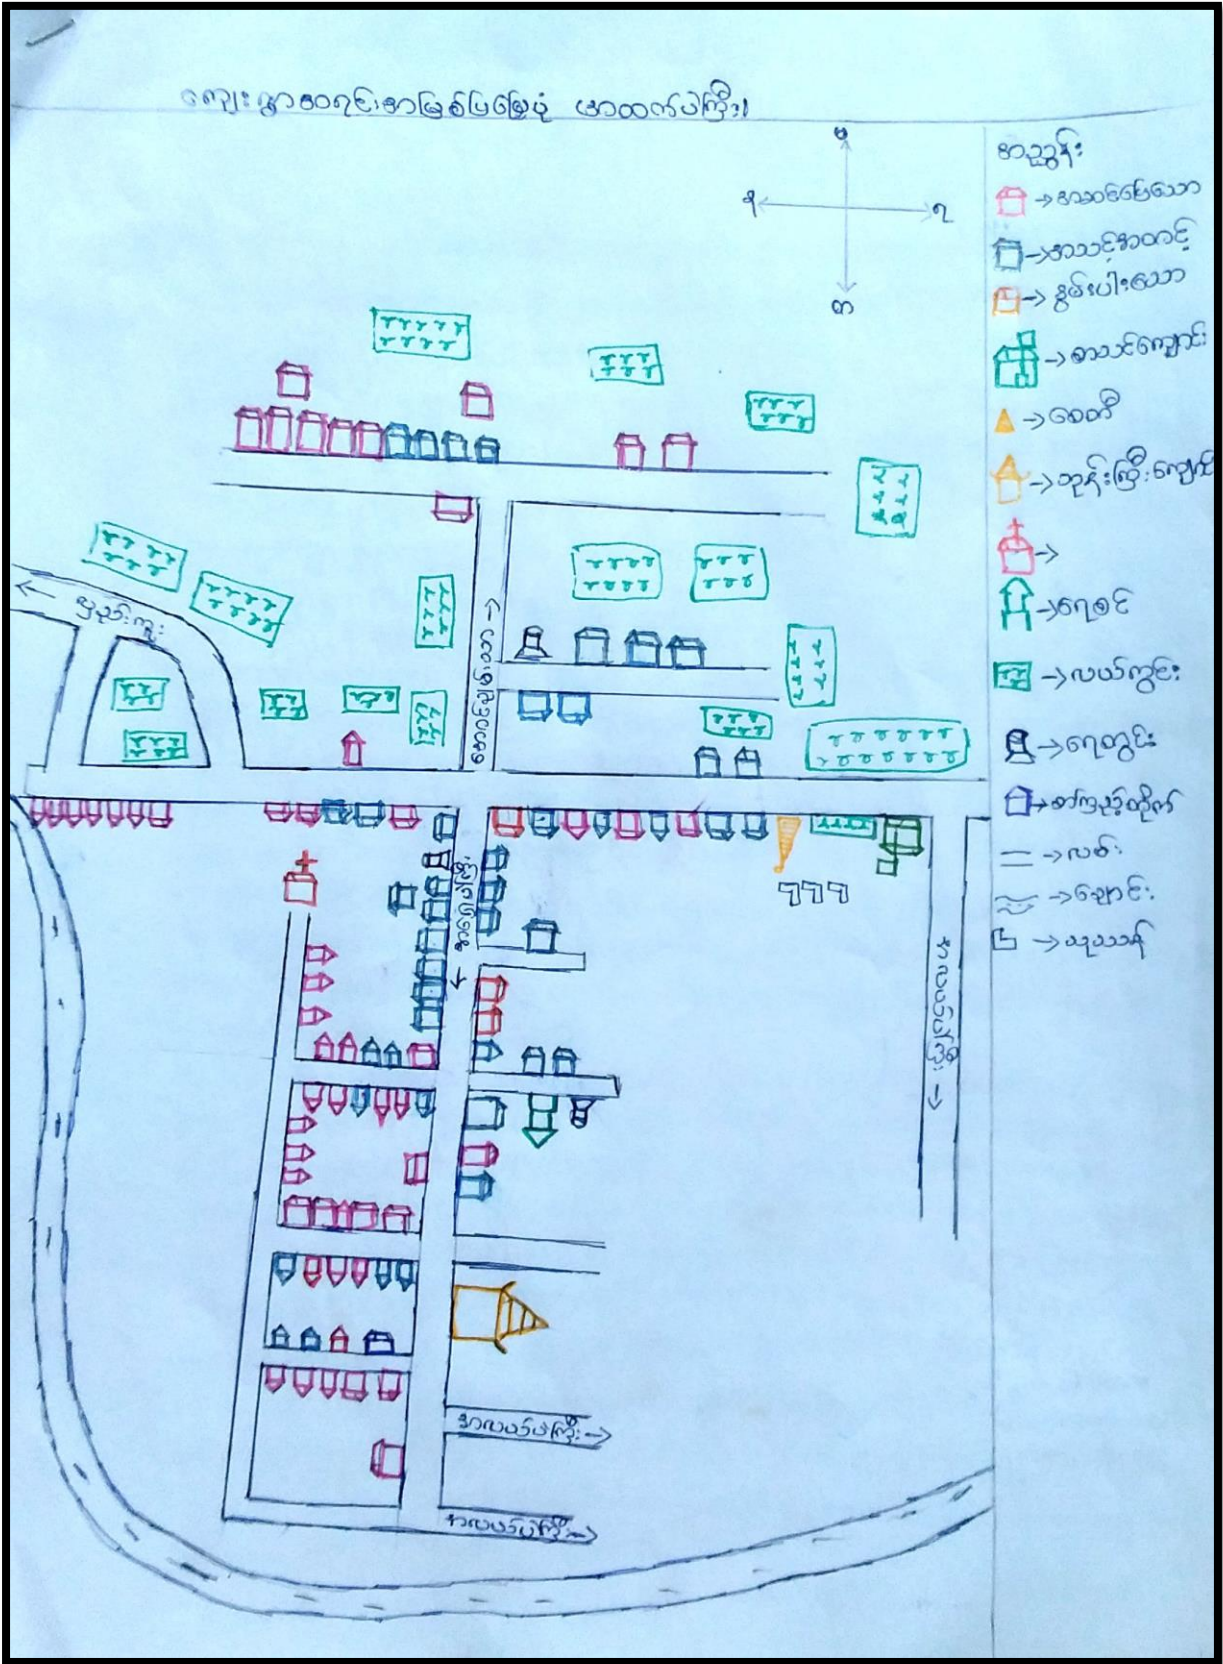 ကျေးရွာစာရင်းအမြစ်ပြမြေပုံ အထက်ပါကြီး၊
မ
န
ရ
တ
အညွှန်း
→အဆင်ပြေသော
→အသင့်အတင့်
→ နွမ်းပါးသော
→စာသင်ကျောင်း
→စေတီ
→ဘုန်းကြီးကျောင်း
→
→ရေစင်
→လယ်ကွင်း
→ရေတွင်း
→စာကြည့်တိုက်
→လမ်း
→ချောင်း
→သုသာန်
← 
အလယ်ပါကြီး →
အလယ်ပါကြီး→
အလယ်ပါကြီး→